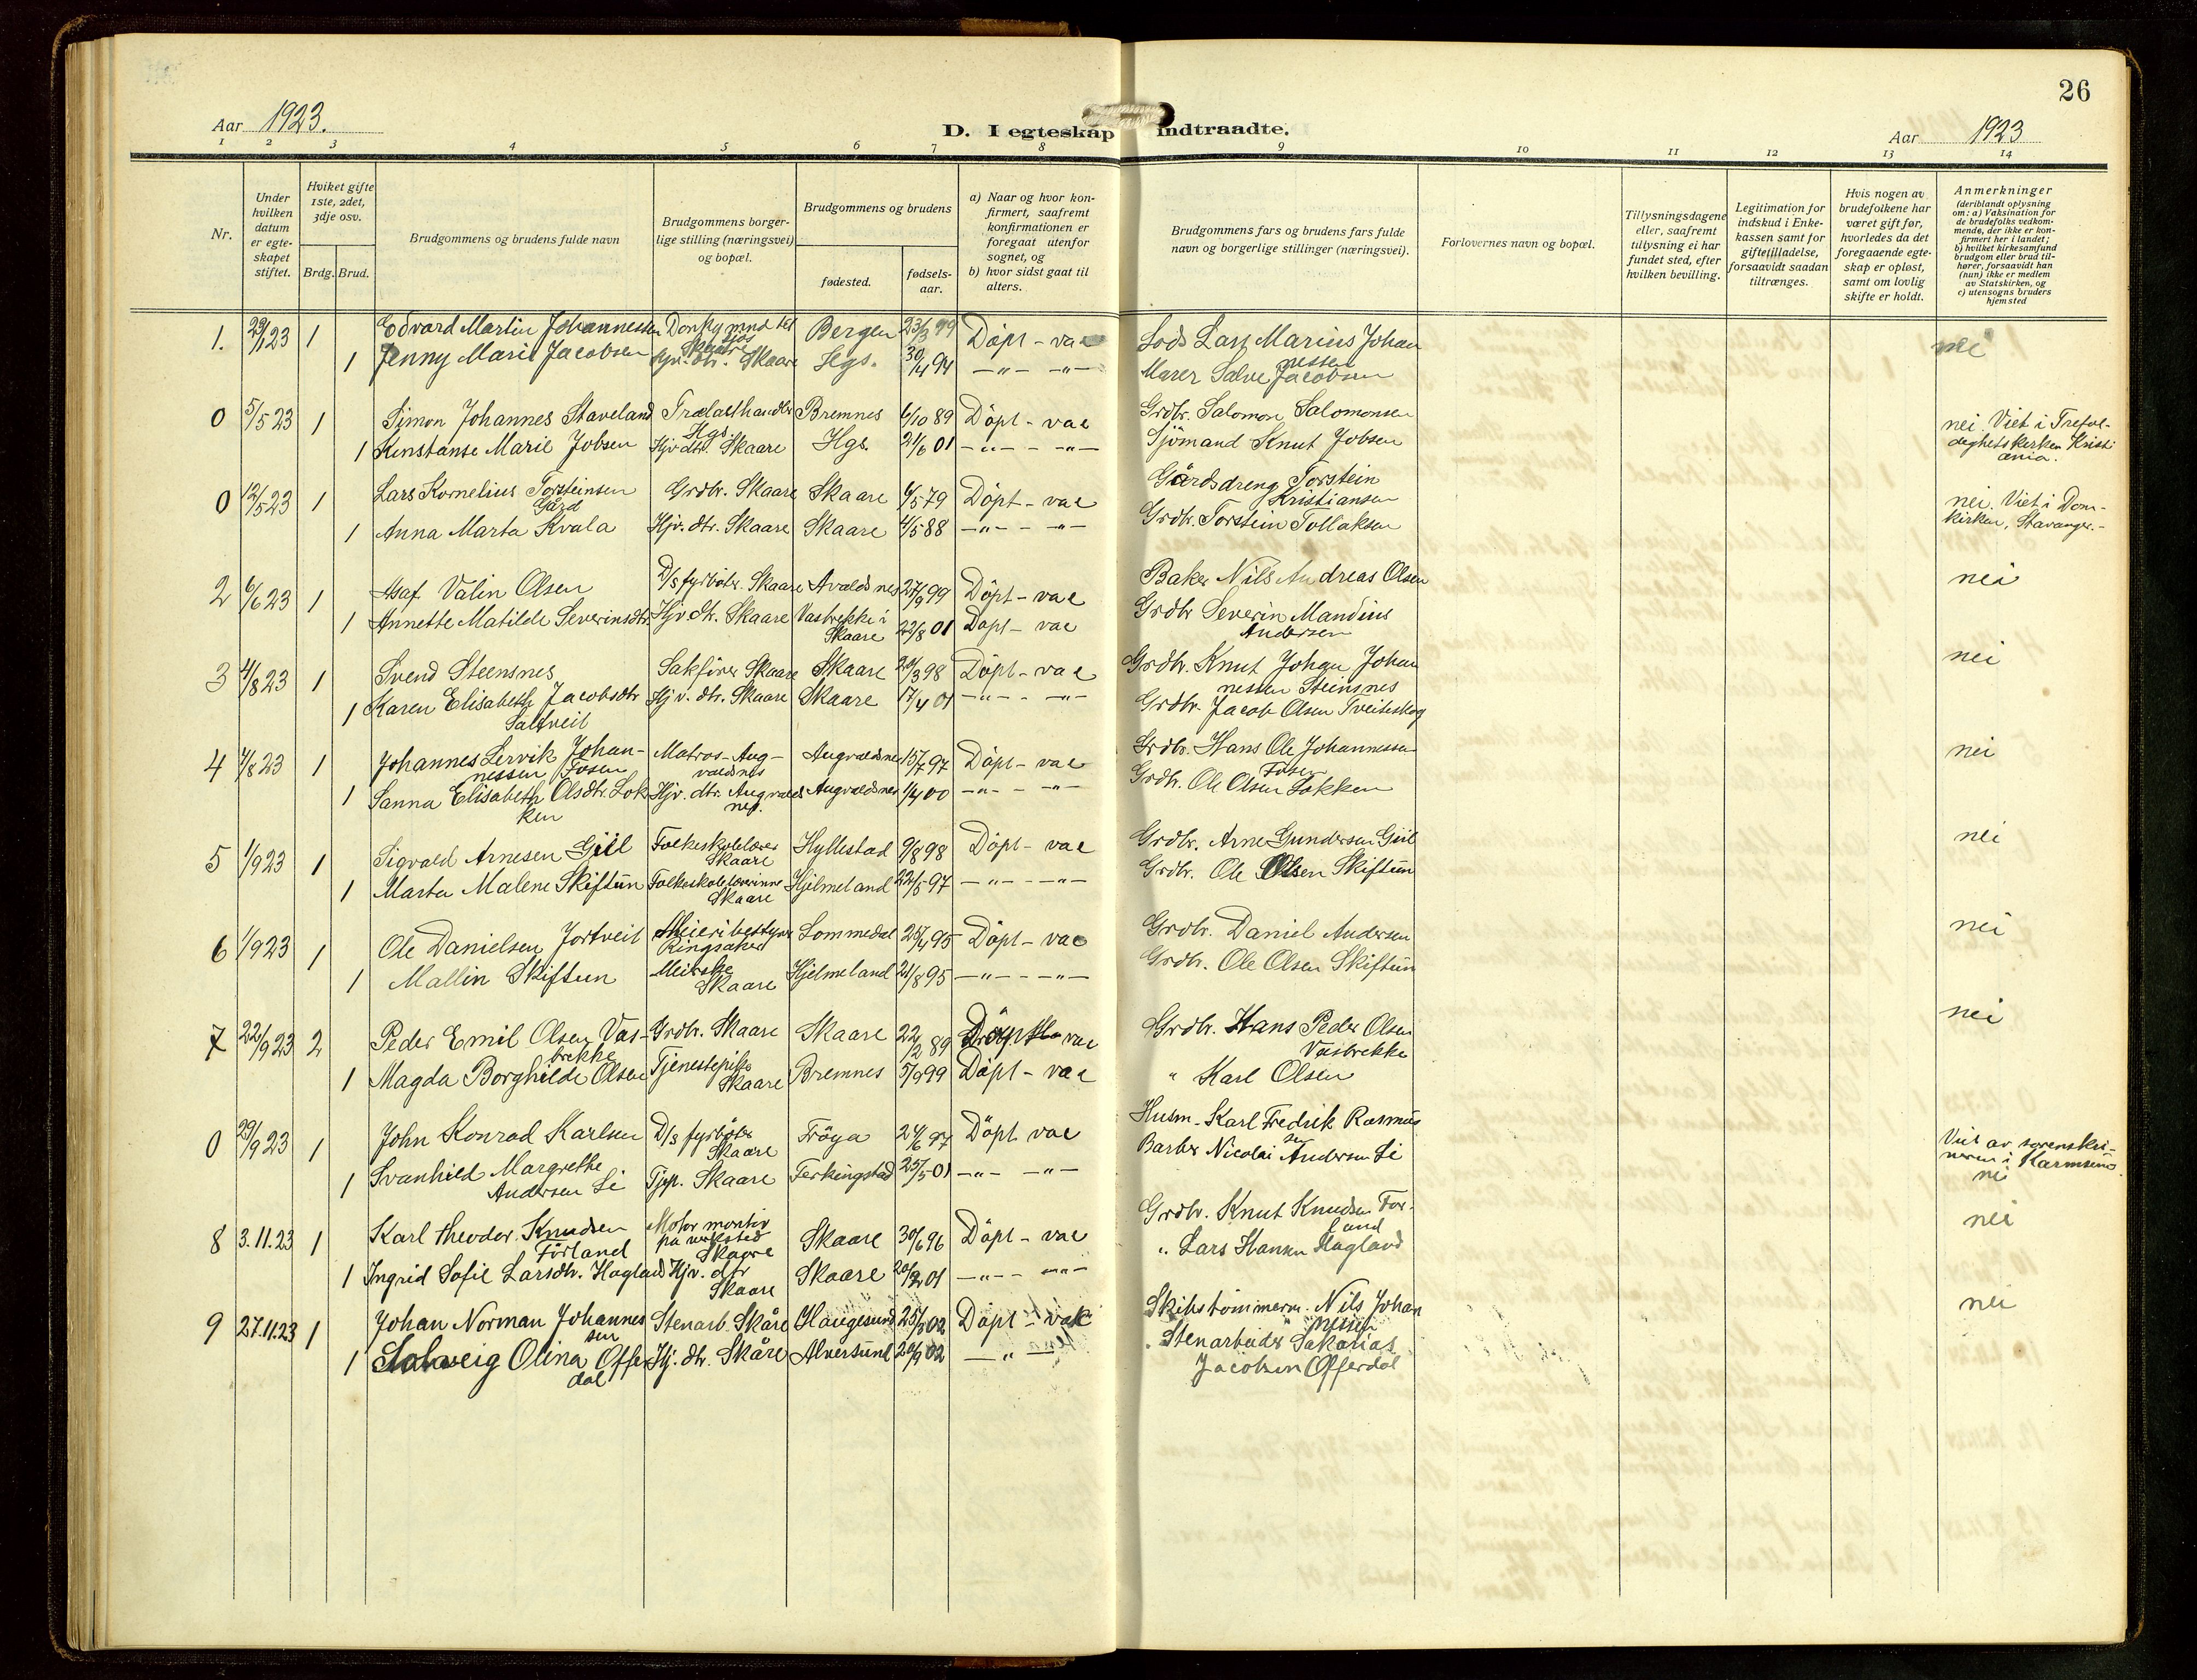 26
Aar 1923.
D. I egteskap indtraadte.
Aar 1923
1 2 3 4 5 6 7 8 9 10 11 12 13 14
Nr.
Under hvilken datum er egteskapet stiftet.
Hviket gifte 1ste, 2det, 3dje osv.
Brdg. Brud.
Brudgommens og brudens fulde navn
Brudgommens borgerlige stilling (næringsvei) og bopæl.
Brudgommens og brudens
fødested.
fødselsaar.
a) Naar og hvor konfirmert, saafremt konfirmationen er foregaat utenfor sognet, og
b) hvor sidst gaat til alters.
Brudgommens fars og brudens fars fulde navn og borgerlige stillinger (næringsvei).
Forlovernes navn og bopæl.
Tillysningsdagene eller, saafremt tillysning ei har fundet sted, efter hvilken bevilling.
Legitimation for indskud i Enkekassen samt for giftetilladelse, forsaavidt saadan tiltrænges.
Hvis nogen av brudefolkene har været gift før, hvorledes da det foregaaende egteskap er opløst, samt om lovlig skifte er holdt.
Anmerkninger (deriblandt oplysning om: a) Vaksination for de brudefolks vedkommende, der ikke er konfirmert her i landet; b) hvilket kirkesamfund brudgom eller brud tilhører, forsaavidt han (hun) ikke er medlem av Statskirken, og c) utensogns bruders hjemsted
1. 29/1 23 1 Edvard Martin Johannesen Donkymnd tilsjös Skaare Bergen 23/3 99 Döpt - vac Lods Lars Marius Johannessen nei
1 Jenny Marie Jacobsen Hjv. dtr. Skaare Hgs. 30/4 94 —"— —"— Maler Salve Jacobsen
0 5/5 23 1 Simon Johannes Staveland Trælasthandler Hgs. Bremnes 6/10 89 Döpt - vac Grdbr. Salomon Salomonsen nei. Viet i Trefoldeghetskirken Kristiania.
1 Konstanse Marie Jobsen Hjv dtr. Skaare Hgs. 21/6 01 —"— —"— Sjömand Knut Jobsen
0 12/5 23 1 Lars Kornelius Torsteinsen Gård Grdbr. Skaare Skaare 6/5 79 Döpt - vac Gårdsdreng Torstein Kristiansen nei. Viet i Domkirken, Stavanger.-
1 Anna Marta Kvala Hjv. dtr. Skaare Skaare 4/5 88 —"— —"— Grdbr. Torstein Tollaksen
2 6/6 23 1 Asaf Valin Olsen D/s fyrböter. Skaare Avaldsnes 27/9 99 Döpt - vac Baker Nils Andreas Olsen nei
1 Annette Matilde Severinsdtr. Hjv. dtr. Skaare Vasbrekke i Skaare 22/8 01 Döpt - vac Grdbr Severin Mandius Andersen
3 4/8 23 1 Svend Steensnes Sakförer Skaare Skaare 20/3 98 Döpt - vac Grdbr. Knut Johan Johannessen Steinsnes nei
1 Karen Elisabeth Jacobsdtr Saltveit Hjv. dtr. Skaare Skaare 17/4 01 —"— —"— Grdbr. Jacob Olsen Tveiteskog
4 4/8 23 1 Johannes Lervik Johannessen Fosen Matros - Augvaldsnes Augvaldsnes 15/7 97 Döpt - vac Grdbr. Hans Ole Johannessen Fosen nei
1 Sanna Elisabeth Olsdtr. Lokken Hjv. dtr. Augvaldsnes. Augvaldsnes 1/4 00 —"— —"— Grdbr. Ole Olsen Lokken
5 1/9 23 1 Sigvald Arnesen Giil Folkeskolelærer Skaare Hyllestad 9/8 98 Döpt - vac Grdbr. Arne Gundersen Giil nei
1 Marta Malene Skiftun Folkeskolelærerinne Skaare Hjelmeland 22/5 97 —"— —"— Grdbr. Ole Olsen Skiftun
6 1/9 23 1 Ole Danielsen Jortveit Meieribestyrer Ringsaker Lommedal 25/4 95 Döpt - vac Grdbr. Daniel Andersen nei
1 Mallin Skiftun Meierske Skaare Hjelmeland 21/8 95 —"— —"— Grdbr. Ole Olsen Skiftun
7 22/9 23 2 Peder Emil Olsen Vasbrekke Grdbr. Skaare Skaare 22/2 89 Döpt - vac Grdbr. Hans Peder Olsen Vasbrekke nei
1 Magda Borghilde Olsen Tjenestepike Skaare Bremnes 5/9 99 Döpt - vac " Karl Olsen
0 29/9 23 1 John Konrad Karlsen D/s fyrböter Skaare Fröya 24/6 97 Döpt vac Husm. Karl Fredrik Rasmussen Viet av sorenskriveren i Karmsund nei
1 Svanhild Margrethe Andersen Li Tjp. Skaare Ferkingstad 25/5 01 —"— —"— Barber Nicolai Andersen Li
8 3.11.23 1 Karl theodor Knudsen Förland Motor montör på verksted Skaare Skaare 30/6 96 Döpt - vac Grdbr. Knut Knudsen Forland nei
1 Ingrid Sofie Larsdtr. Hagland Hjv. dtr Skaare Skaare 20/2 01 —"— —"— " Lars Hansen Hagland
9 27.11.23 1 Johan Norman Johannessen Stenarb. Skåre Haugesund 25/3 02 Döpt - vak Skibstömmerm. Nils Johannessen nei
1 Solveig Olina Offerdal Hj. dtr. Skåre Alversund 20/9 02 —"— Stenarbeider Sakarias Jacobsen Offerdal